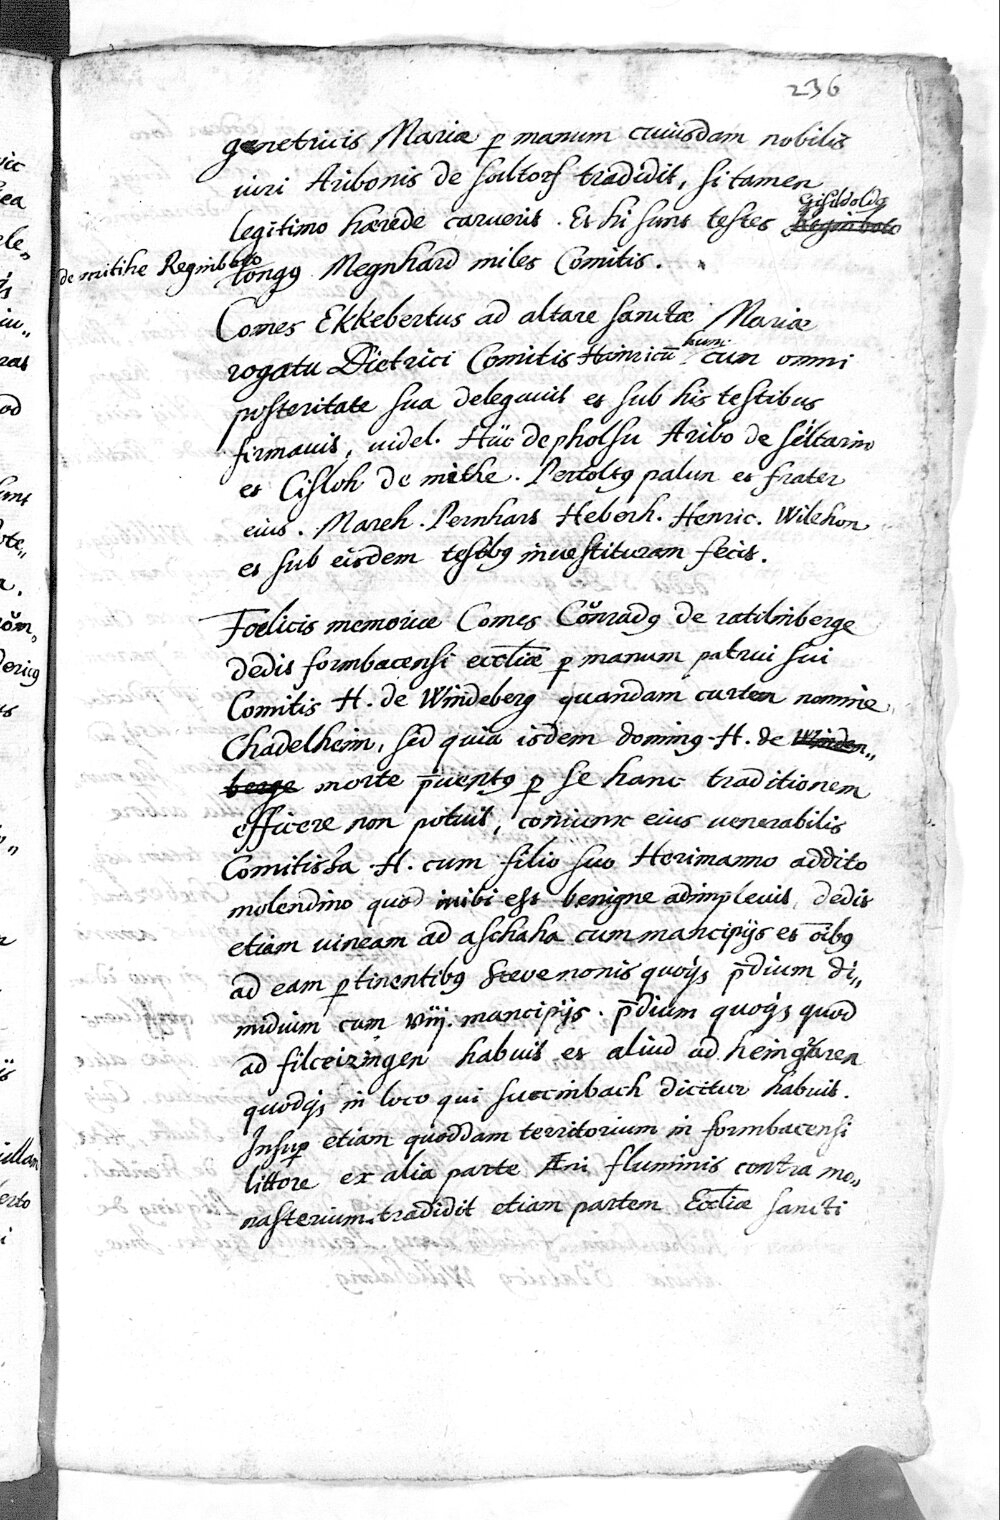 236
genetricis Mariæ p manum cuiusdam nobilis
uiri Aribonis de soltorf tradidit, si tamen
Gisildoldg
legitimo hærede caruerit. Et hi sunt testes Reginboto
de mitihe Reginboto longg Megnhard miles Comitis.
Comes Ekkebertus ad altare sanctæ Mariæ
rogatu Dietrici Comitis Hainricū hunc cum omni
posteritate sua delegauit et sub his testibus
firmauit, uidel. Hüc de pholsu Aribo de seltarin
et Cisloh de mithe. Pertoltg palun et frater
eius. Mareh. Pernhart Heberh. Henric. Wilchon
et sub eisdem testibg inuestituram fecit.
Foelicis memoriæ Comes Cŏnradg de ratilinberge
dedit formbacensi eccliæ p manum patrui sui
Comitis H. de Windeberg quandam curtem nomine
Chadelheim, sed quia isdem doming H. de Winden„
berge morte p̄uentg p se hanc traditionem
efficere non potuit, coniunx eius uenerabilis
Comitissa H. cum filio suo Herimanno addito
molendino quod inibi est benigne adimpleuit, dedit
etiam uineam ad aschaha cum mancipijs et oībg
ad eam ptinentibg steuenonis quoqs p̄dium di„
midium cum viij. mancipijs. p̄dium quoqs quod
ad filceizingen habuit et aliud ad heingaren
quodqs in loco qui succinbach dicitur habuit.
Insup etiam quoddam territorium in formbacensi
littore ex alia parte Æni fluminis contra mo„
nasterium tradidit etiam partem Eccliæ sancti